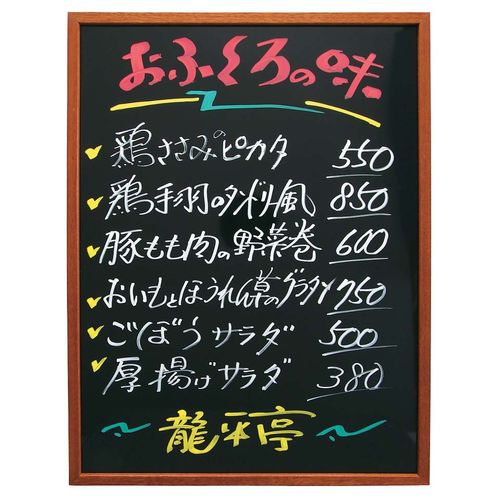 おふくろの味
鶏ささみのピカタ 550
鶏手羽のタンドリ風 850
豚もも肉の野菜巻 600
おいもとほうれん草のグラタン 750
ごぼうサラダ 500
厚揚げサラダ 380
龍平亭